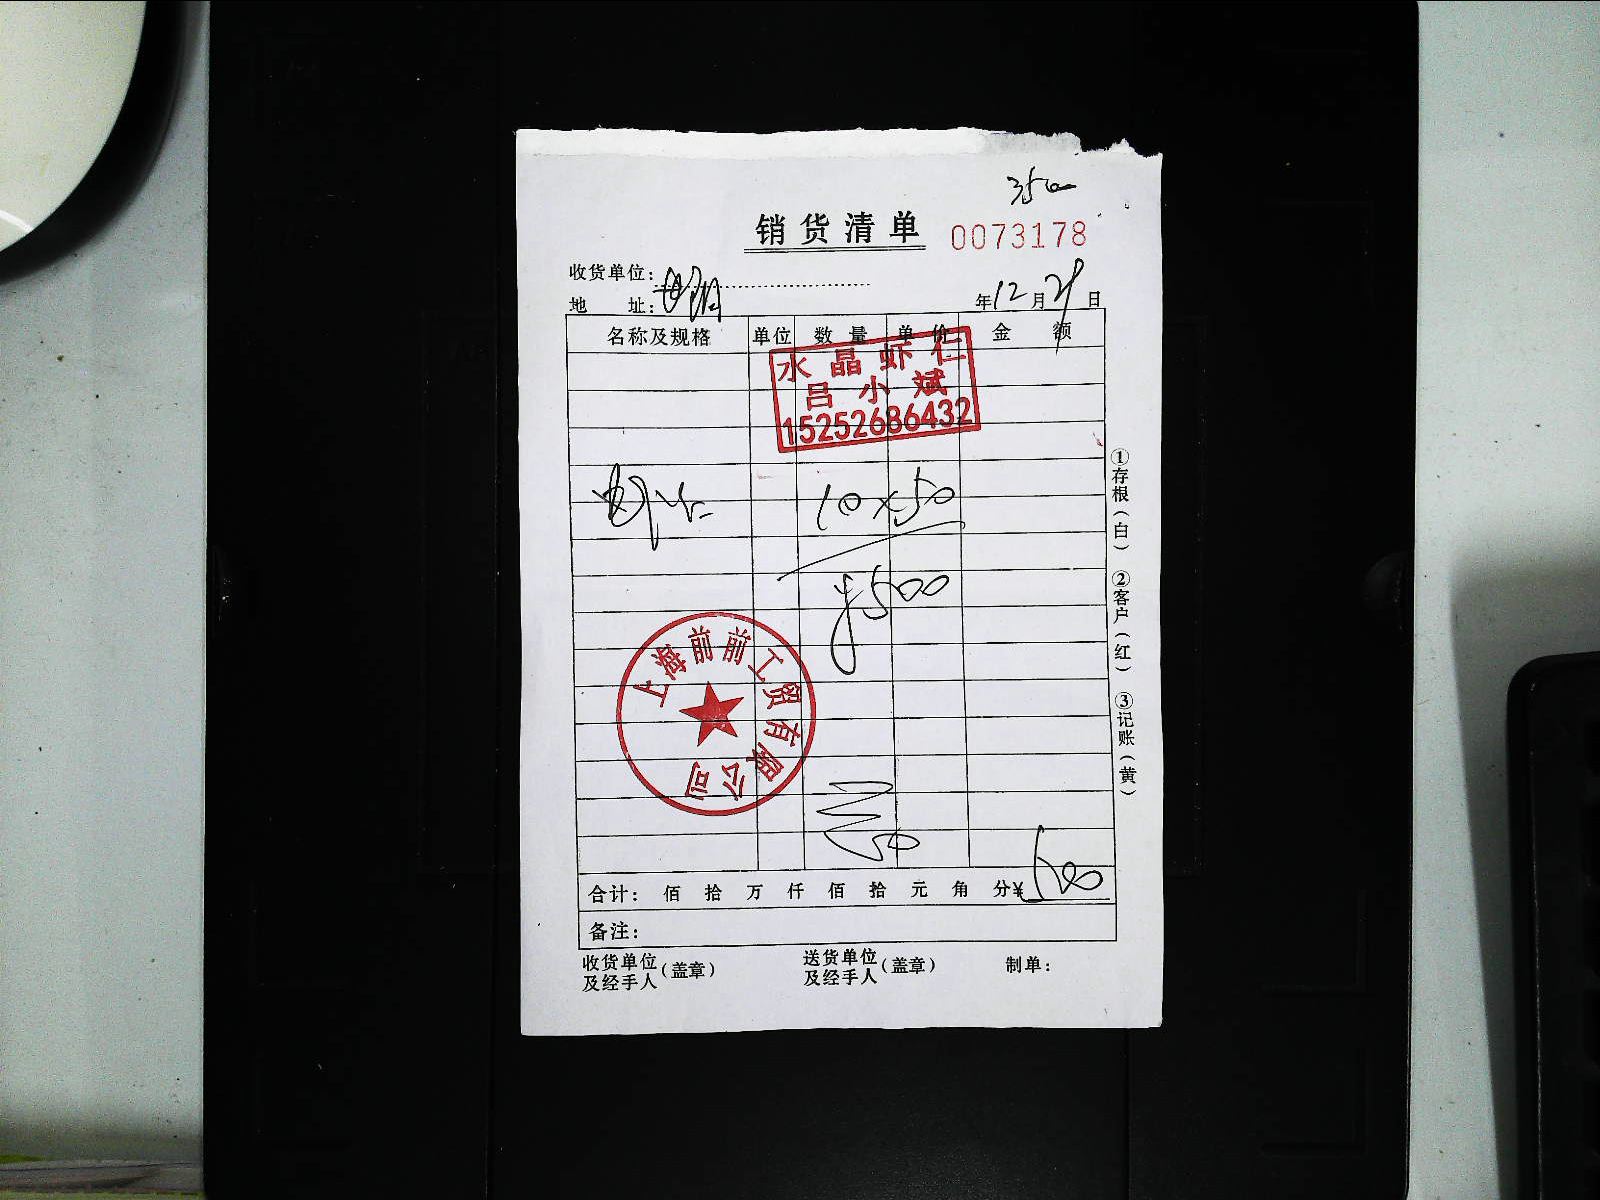 3500
销货清单 0073178
收货单位:
地 址: 年12月29日
名称及规格 单位 数量 单价 金额
水晶虾仁
吕小斌
15252686432
10×50
¥500
上海前前工贸有限公司
50
合计: 佰 拾 万 仟 佰 拾 元 角 分¥500
备注:
收货单位及经手人(盖章) 送货单位及经手人(盖章) 制单:
①存根(白) ②客户(红) ③记账(黄)